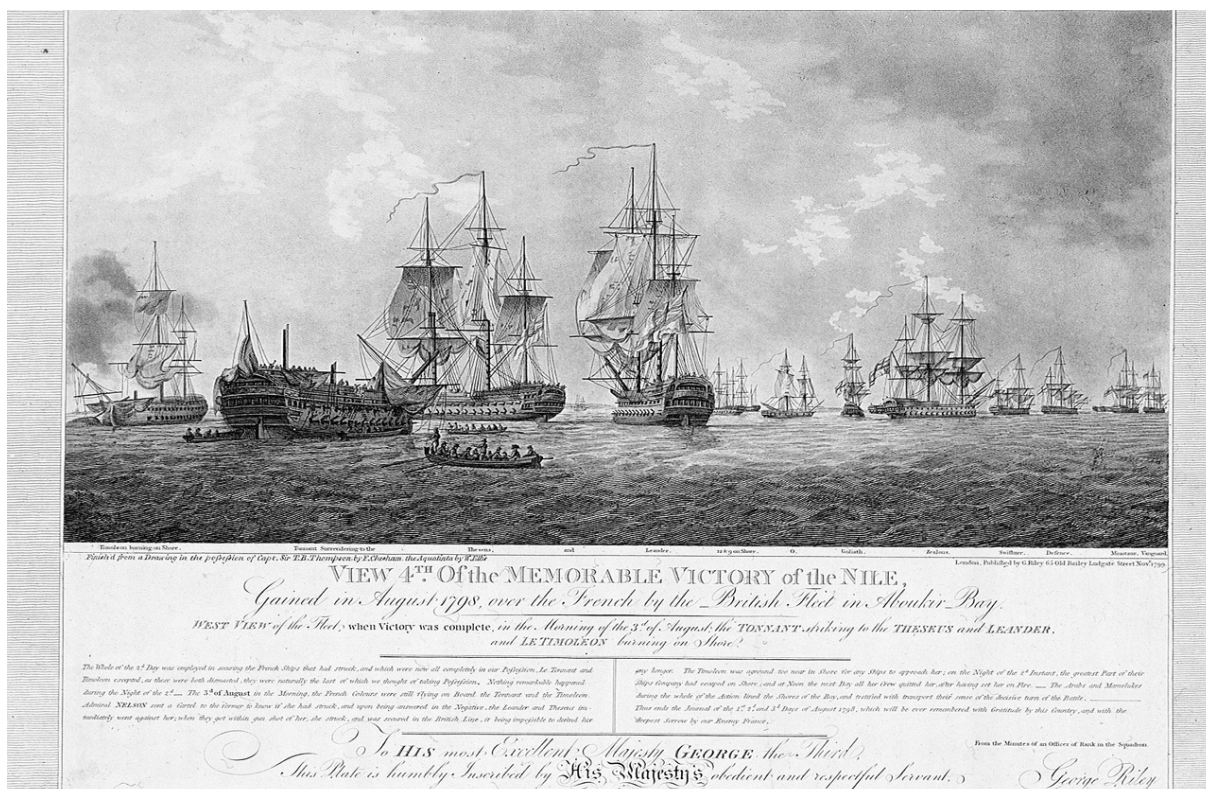 Timoleon burning on Shore. Tonnant Surrendering to the Theseus, and Leander. 12 & 9 on Shore. O. Goliath. Zealous. Swiftsure. Defence. Minotaur. Vanguard.
Finish'd from a Drawing in the possession of Capt. Sir T.B. Thompson by F. Chesham. the Aquatinta by W. Ellis London, Published by G. Riley 65 Old Bailey Ludgate Street Novr. 1799.
VIEW 4TH Of the MEMORABLE VICTORY of the NILE,
Gained in August 1798, over the French by the British Fleet in Aboukir Bay.
WEST VIEW of the Fleet, when Victory was complete, in the Morning of the 3d. of August; the TONNANT striking to the THESEUS and LEANDER,
and LE TIMOLEON burning on Shore.
The Whole of the 2d. Day was employed in securing the French Ships that had struck, and which were now all completely in our Possession, Le Tonnant and
Timoleon excepted, as these were both dismasted, they were naturally the last of which we thought of taking Possession. Nothing remarkable happened
during the Night of the 2d. The 3d of August in the Morning, the French Colours were still flying on Board the Tonnant and the Timoleon.
Admiral NELSON sent a Cartel to the former to know if she had struck, and upon being answered in the Negative, the Leander and Theseus im-
mediately went against her; when they got within gun shot of her, she struck, and was secured in the British Line, it being impossible to defend her
any longer. The Timoleon was aground too near in Shore for any Ships to approach her; on the Night of the 2d. Instant, the greatest Part of their
Ships Company had escaped on Shore; and at Noon the next Day all her Crew quitted her, after having set her on Fire. The Arabs and Mamelukes
during the whole of the Action lined the Shores of the Bay, and testified with transport their sense of the decisive turn of the Battle.
Thus ends the Journal of the 1st. 2d. and 3d. Days of August 1798, which will be ever remembered with Gratitude by this Country, and with the
Deepest Sorrow by our Enemy France.
From the Minutes of an Officer of Rank in the Squadron.
To HIS most Excellent Majesty GEORGE the Third,
This Plate is humbly Inscribed by His Majesty's obedient and respectful Servant,
George Riley